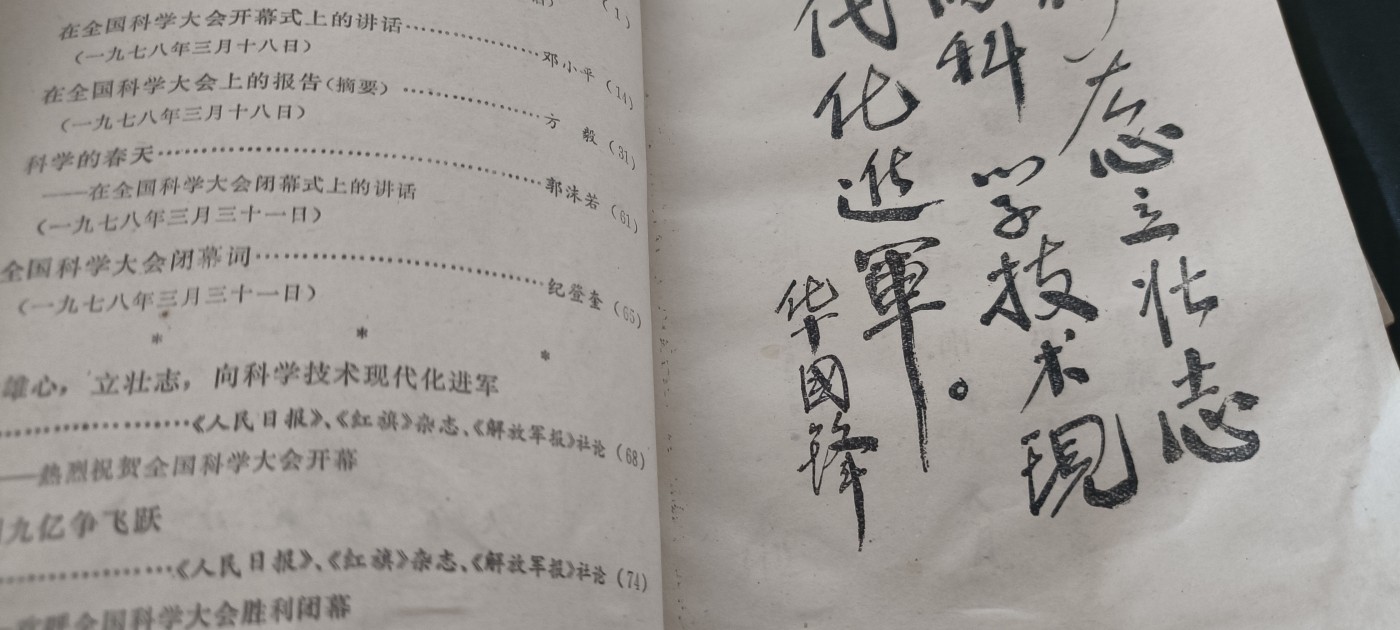 (1)
在全国科学大会开幕式上的讲话……………邓小平(14)
(一九七八年三月十八日)
在全国科学大会上的报告(摘要)……………方 毅(31)
(一九七八年三月十八日)
科学的春天……………郭沫若(61)
——在全国科学大会闭幕式上的讲话
(一九七八年三月三十一日)
全国科学大会闭幕词……………纪登奎(65)
(一九七八年三月三十一日)
* * *
雄心,立壮志,向科学技术现代化进军
……………《人民日报》、《红旗》杂志、《解放军报》社论(68)
——热烈祝贺全国科学大会开幕
九亿争飞跃
……………《人民日报》、《红旗》杂志、《解放军报》社论(74)
全国科学大会胜利闭幕
志立壮志
科学技术現
代化進軍。
华國锋